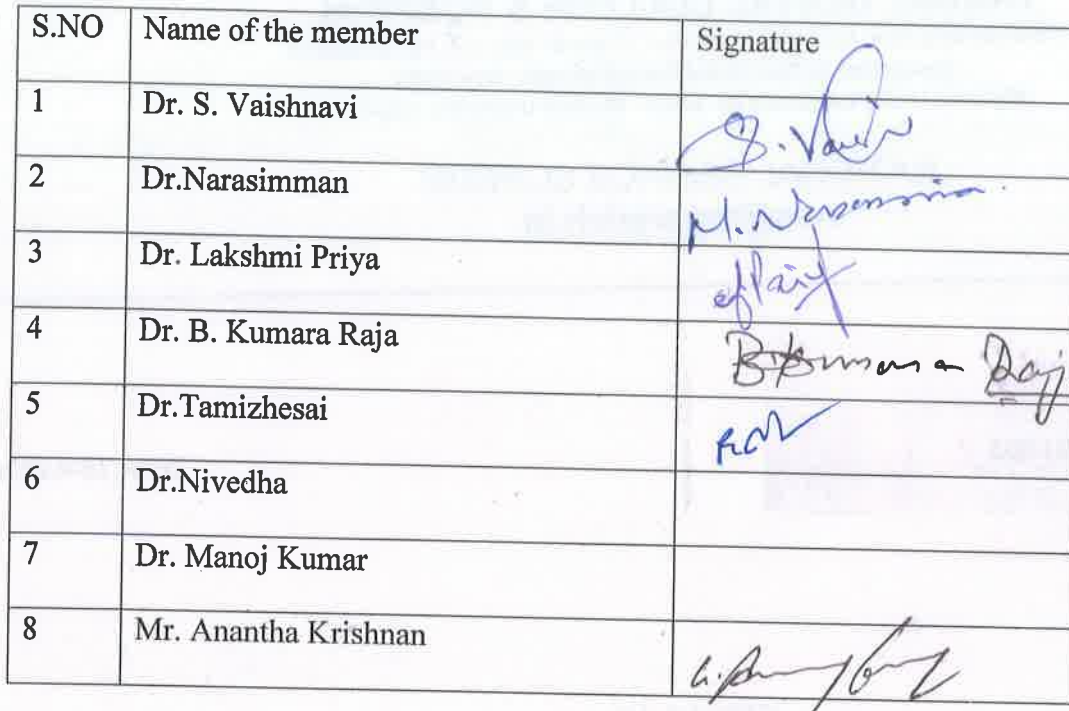 S.NO Name of the member Signature
1 Dr. S. Vaishnavi
2 Dr.Narasimman
3 Dr. Lakshmi Priya
4 Dr. B. Kumara Raja
5 Dr.Tamizhesai
6 Dr.Nivedha
7 Dr. Manoj Kumar
8 Mr. Anantha Krishnan